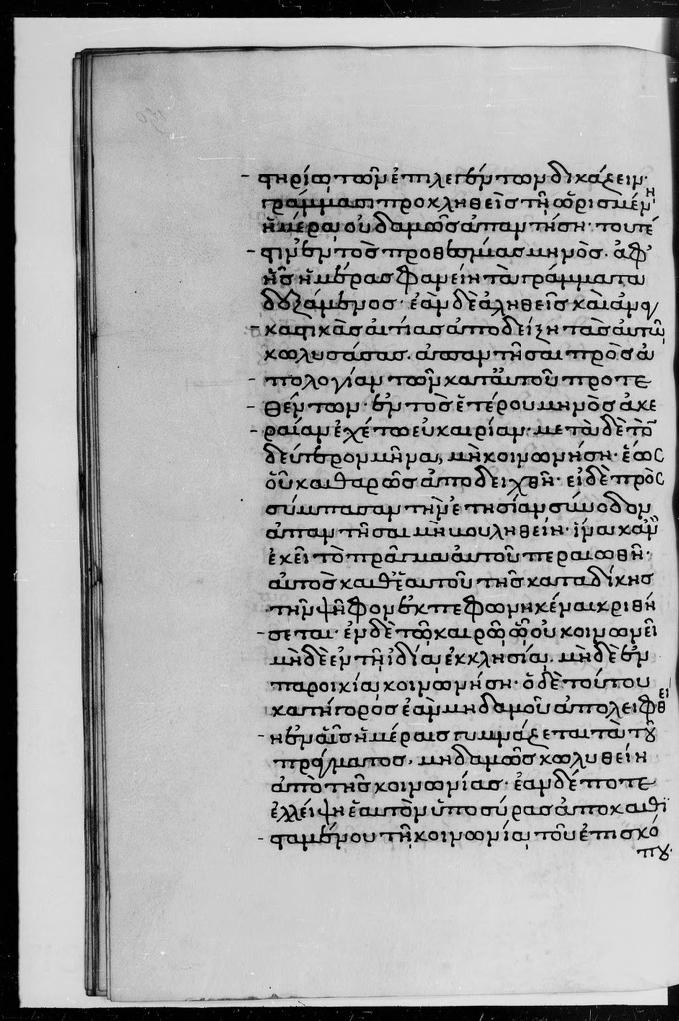 στηρίω τῶν ἐπιλεγέντων δικάζειν·
γράμμασι προκληθεὶς τῇ ὡρισμένῃ
ἡμέρᾳ οὐδαμῶς ἀπαντήσῃ· τουτέ
στιν ἐντὸς προθεσμίας μηνὸς. ἀφ'
ἧς ἡμέρας φανείη τὰ γράμματα
δεξάμενος· ἐὰν δὲ ἀληθεῖς καὶ ἀναγ
καστικὰς αἰτίας ἀποδείξῃ τὰς αὐτὸν
κωλυσάσας. ἀπαντῆσαι πρὸς ἀ
πολογίαν τῶν κατ' αὐτοῦ προτε
θέντων· ἐντὸς ἑτέρου μηνὸς ἀκε
ραίαν ἐχέτω εὐκαιρίαν· μετὰ δὲ τὸν
δεύτερον μῆνα, μὴ κοινωνήσῃ· ἕως
οὗ καθαρῶς ἀποδειχθῇ· εἰ δὲ πρὸς
σύμπασαν τὴν ἐτησίαν σύνοδον
ἀπαντῆσαι μὴ βουληθείη· ἵνα κἂν
ἐκεῖ τὸ πρᾶγμα αὐτοῦ περαιωθῇ·
αὐτὸς καθ' ἑαυτοῦ τῆς καταδίκης
τὴν ψῆφον ἐκπεφωνηκέναι κριθή
σεται· ἐν δὲ τῷ καιρῷ ᾧ οὐ κοινωνεῖ
μηδὲ ἐν τῇ ἰδίᾳ ἐκκλησίᾳ. μηδὲ ἐν
παροικίᾳ κοινωνήσῃ· ὁ δὲ τούτου
κατήγορος ἐὰν μηδαμοῦ ἀπολειφθεί
η ἐν αἷς ἡμέραις γυμνάζεται τὰ τοῦ
πράγματος, μηδαμῶς κωλυθείη
ἀπὸ τῆς κοινωνίας· ἐὰν δέ ποτε
ἐλλείψῃ ἑαυτὸν ὑποσύρας ἀποκαθι
σταμένου τῇ κοινωνίᾳ τοῦ ἐπισκό
που·